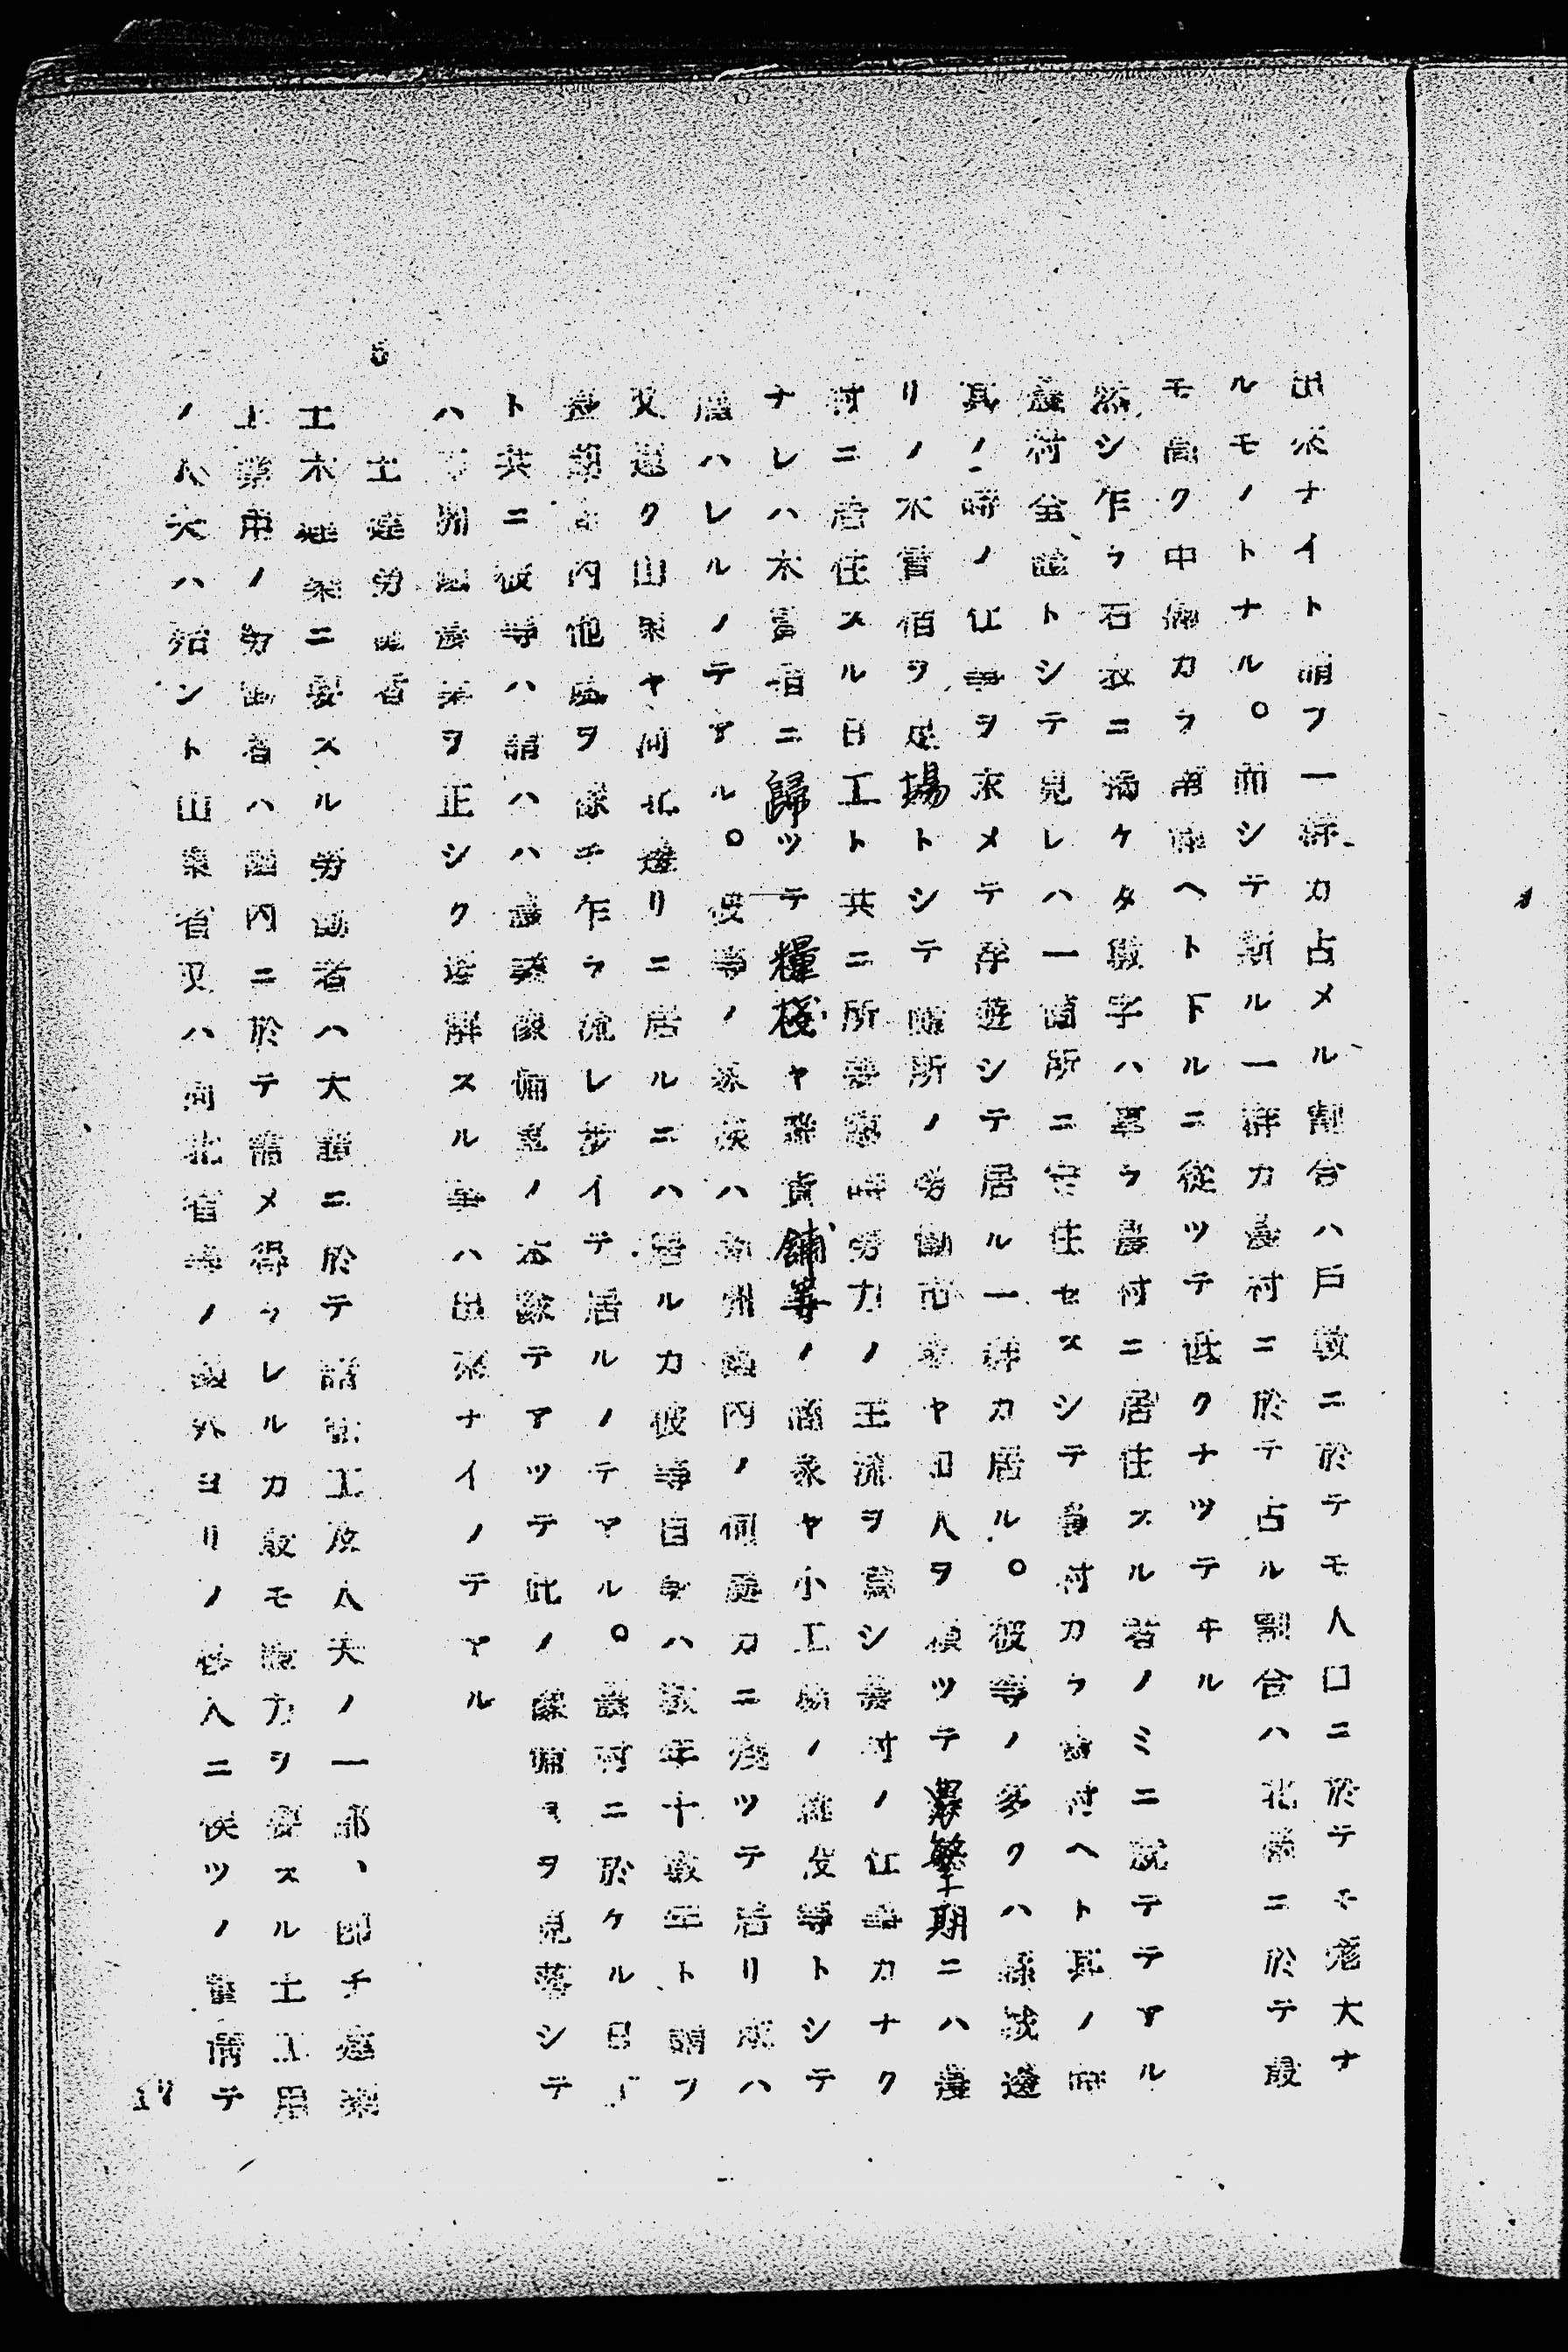 出來ナイト謂フ一群カ占メル割合ハ戶數ニ於テモ人口ニ於テモ尨大ナ
ルモノトナル。而シテ斯ル一群カ農村ニ於テ占ル割合ハ北滿ニ於テ最
モ高ク中滿カラ南滿ヘト下ルニ從ツテ低クナツテヰル
然シ乍ラ右表ニ揭ケタ數字ハ專ラ農村ニ居住スル者ノミニ就テテアル
農村全體トシテ見レハ一箇所ニ定住セスシテ農村カラ農村ヘト其ノ
其ノ時ノ仕事ヲ求メテ浮遊シテ居ル一群カ居ル。彼等ノ多クハ縣城邊
リノ木賃宿ヲ足場トシテ所ノ勞働市ヤ知人ヲ賴ツテ農繁期ニハ農
村ニ居住スル日工ト共ニ所要臨時勞力ノ主流ヲ爲シ農村ノ仕事カナク
ナレハ木賃宿ニ歸ツテ糧棧ヤ雜貨舖等ノ商家ヤ小工場ノ雜役等トシテ
雇ハレルノテアル。彼等ノ家族ハ滿州國內ノ何處カニ殘ツテ居リ或ハ
又遠ク山東ヤ河北邊リニ居ルニハ居ルカ彼等自身ハ數年十數年ト謂フ
內他處ヲ流レ步イテ居ルノテアル。農村ニ於ケル日工
ト共ニ彼等ハ謂ハハ農業傭ノ本隊テアツテ此ノヲ見落シテ
ハ滿洲農業ヲ正シク理解スル事ハ出來ナイノテアル
土建勞働者
土木建築ニ要スル勞働者ハ大體ニ於テ諸職工及人夫ノ一部、卽チ建築
ノ勞働者ハ國內ニ於テ需メ得ラレルカ最モ勞力ヲ要スル土工用
ノ人夫ハ殆ント山東省又ハ河北省等ノ國外ヨリノ移入ニ俟ツノ實情テ
17